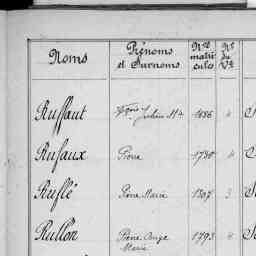 Noms Prénoms et Surnoms Nos matricules No du Vol
Ruffaut Julien 1686 4
Rufaux Pierre 1780 4
Ruflé Pierre Marie 1307 3
Rullon Pierre Ange Marie 1793 4